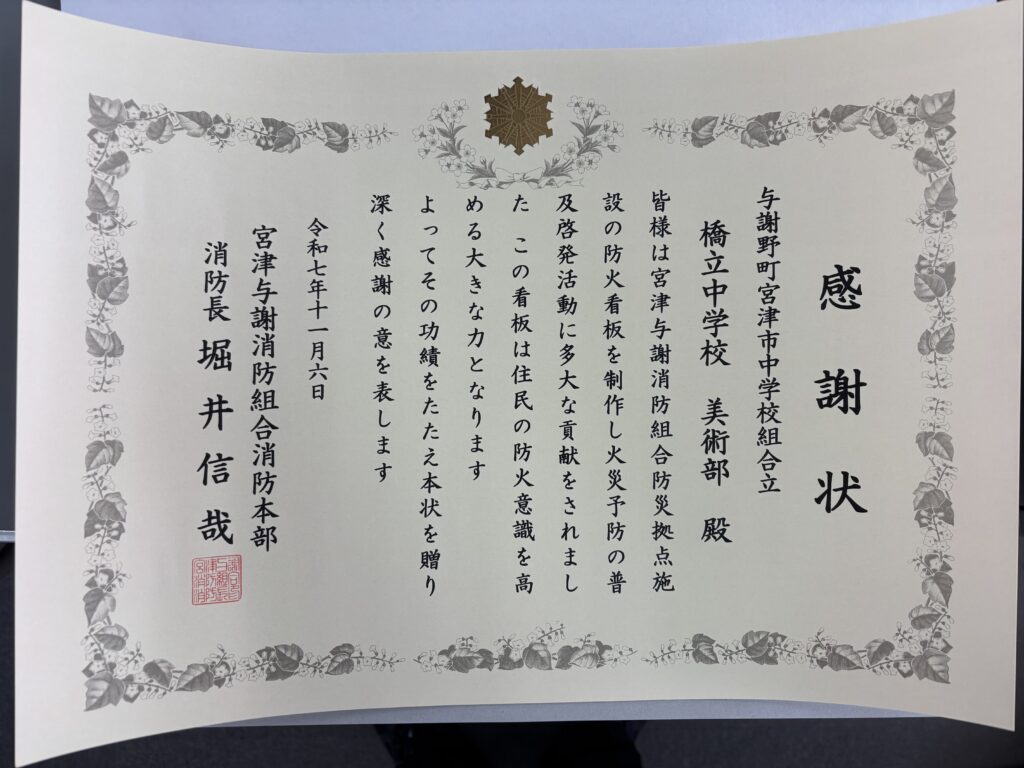 感謝状
与謝野町宮津市中学校組合立
橋立中学校　美術部　殿
皆様は宮津与謝消防組合防災拠点施
設の防火看板を制作し火災予防の普
及啓発活動に多大な貢献をされまし
た　この看板は住民の防火意識を高
める大きな力となります
よってその功績をたたえ本状を贈り
深く感謝の意を表します
令和七年十一月六日
宮津与謝消防組合消防本部
消防長　堀井信哉